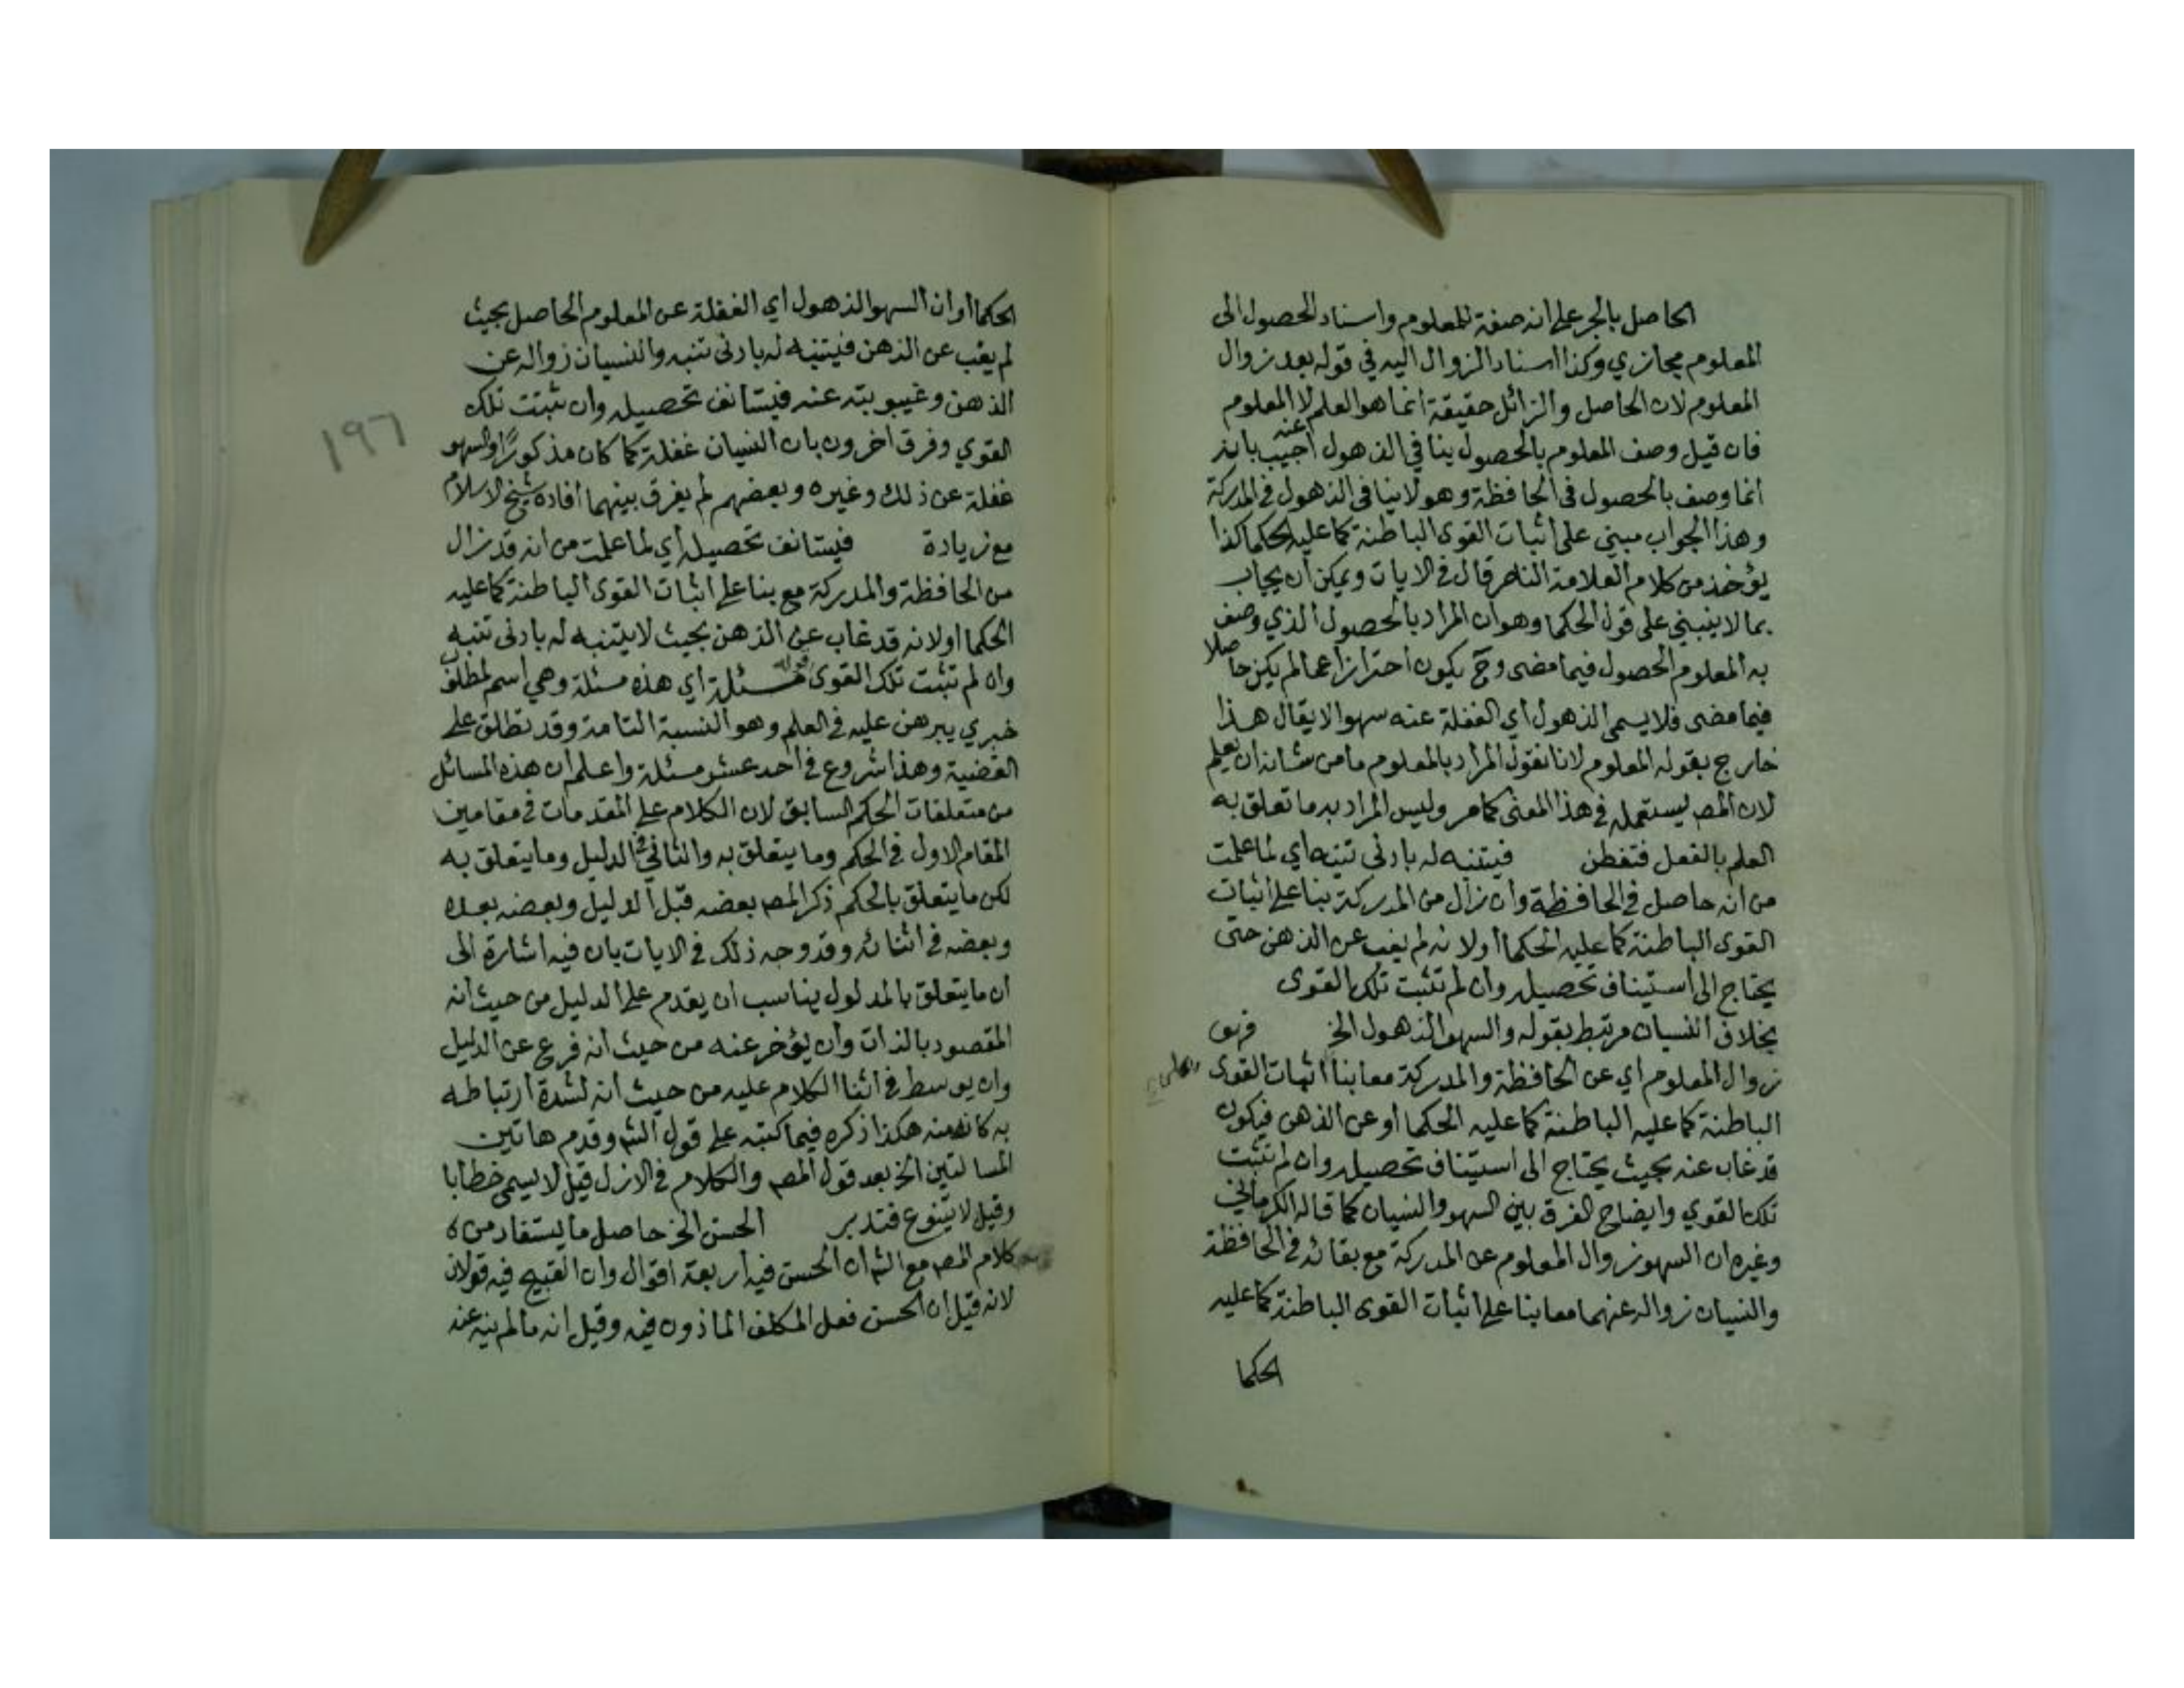 الحاصل بالجر على انه صفة للمعلوم واسناد الحصول الى
المعلوم مجازي وكذا اسناد الزوال اليه في قوله بعد زوال
المعلوم لان الحاصل والزائل حقيقة انما هو العلم لا المعلوم
فان قيل وصف المعلوم بالحصول ينافي الذهول عنه اجيب بانه
انما وصف بالحصول في الحافظة وهو لا ينافي الذهول في المدركة
وهذا الجواب مبني على اثبات القوى الباطنة كما عليه الحكما كذا
يؤخذ من كلام العلامة الناصر قال في الايات ويمكن ان يجاب
بما لا ينبني على قول الحكما وهو ان المراد بالحصول الذي وصف
به المعلوم الحصول فيما مضى وح يكون احترازا عما لم يكن حاصلا
فيما مضى فلا يسمى الذهول اي الغفلة عنه سهوا لا يقال هذا
خارج بقوله المعلوم لانا نقول المراد بالمعلوم ما من شانه ان يعلم
لان المصر يستعمله في هذا المعنى كما مر وليس المراد به ما تعلق به
العلم بالفعل فتفطن فيتنبه له بادنى تنبه اي لما علمت
من انه حاصل في الحافظة وان زال من المدركة بنا على اثبات
القوى الباطنة كما عليه الحكما أولانه لم يغب عن الذهن حتى
يحتاج الى استيناف تحصيله وان لم تثبت تلك القوى
بخلاف النسيان مرتبط بقوله والسهو الذهول الخ فهو
زوال المعلوم اي عن الحافظة والمدركة معا بنا اثبات القوى
الباطنة كما عليه الباطنة كما عليه الحكما او عن الذهن فيكون
قد غاب عنه بحيث يحتاج الى استيناف تحصيله وان لم تثبت
تلك القوي وايضاح الفرق بين السهو والنسيان كما قاله الكرماني
وغيره ان السهو زوال المعلوم عن المدركة مع بقائه في الحافظة
والنسيان زواله عنهما معا بنا على اثبات القوى الباطنة كما عليه
الحكما
الحكما او ان السهو الذهول اي الغفلة عن المعلوم الحاصل بحيث
لم يغب عن الذهن فيتنبه له بادنى تنبه والنسيان زواله عن
الذهن وغيبوبته عنه فيستانف تحصيله وان ثبتت تلك
القوي وفرق آخرون بان النسيان غفلة كما كان مذكورًا والسهو
غفلة عن ذلك وغيره وبعضهم لم يفرق بينهما افاده شيخ الاسلام
مع زيادة فيستانف تحصيله اي لما علمت من انه قد زال
من الحافظة والمدركة مع بنا على اثبات القوى الباطنة كما عليه
الحكما اولانه قد غاب عن الذهن بحيث لا يتنبه له بادنى تنبه
وان لم تثبت تلك القوى قوله مسئلة اي هذه مسئلة وهي اسم لمطلوب
خبري يبرهن عليه في العلم وهو النسبة التامة وقد تطلق على
القضية وهذا شروع في احد عشر مسئلة واعلم ان هذه المسائل
من متعلقات الحكم السابق لان الكلام على المقدمات في مقامين
المقام الاول في الحكم وما يتعلق به والثاني في الدليل وما يتعلق به
لكن ما يتعلق بالحكم ذكر المصر بعضه قبل الدليل وبعضه بعده
وبعضه في اثنائه وقد وجه ذلك في الايات بان فيه اشارة الى
ان ما يتعلق بالمدلول يناسب ان يقدم على الدليل من حيث انه
المقصود بالذات وان يؤخر عنه من حيث انه فرع عن الدليل
وان يوسط في اثنا الكلام عليه من حيث انه لشدة ارتباطه
به كانه منه هكذا ذكره فيما كتبه على قول الشر وقدم هاتين
المسالتين الخ بعد قول المصر والكلام في الازل قيل لا يسمى خطابا
وقيل لا يتنوع فتدبر الحسن الخ حاصل ما يستفاد من
كلام المصر مع الشر ان الحسن فيه اربعة اقوال وان القبيح فيه قولان
لانه قيل ان الحسن فعل المكلف الماذون فيه وقيل انه ما لم ينه عنه
١٩٦